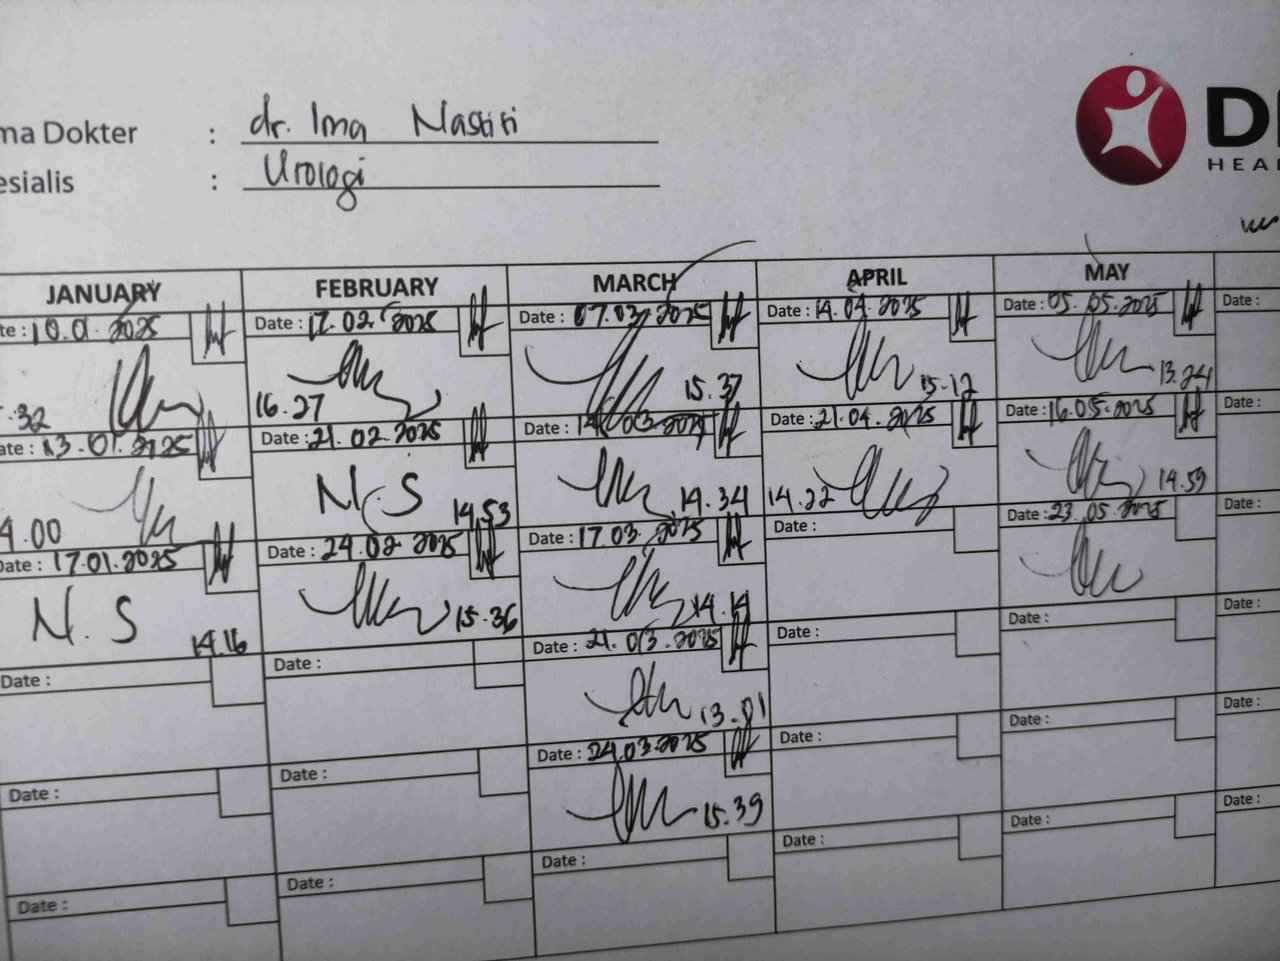 ma Dokter : dr. Ima Nastiti
esialis : Urologi
HEA
JANUARY FEBRUARY MARCH APRIL MAY
te : 10.01.2025 Date : 17.02.2025 Date : 07.03.2025 Date : 14.04.2025 Date : 05.05.2025 Date :
.32 16.27 15.37 15.12 13.24
ate : 13.01.2025 Date : 21.02.2025 Date : 14.03.2025 Date : 21.04.2025 Date : 16.05.2025 Date :
4.00 N.S 14.53 14.34 14.22 14.59
Date : 17.01.2025 Date : 24.02.2025 Date : 17.03.2025 Date : Date : 23.05.2025 Date :
N.S 14.16 15.36 14.14
Date : Date : Date : 21.03.2025 Date : Date : Date :
13.01
Date : Date : Date : 24.03.2025 Date : Date : Date :
15.39
Date : Date : Date : Date : Date : Date :